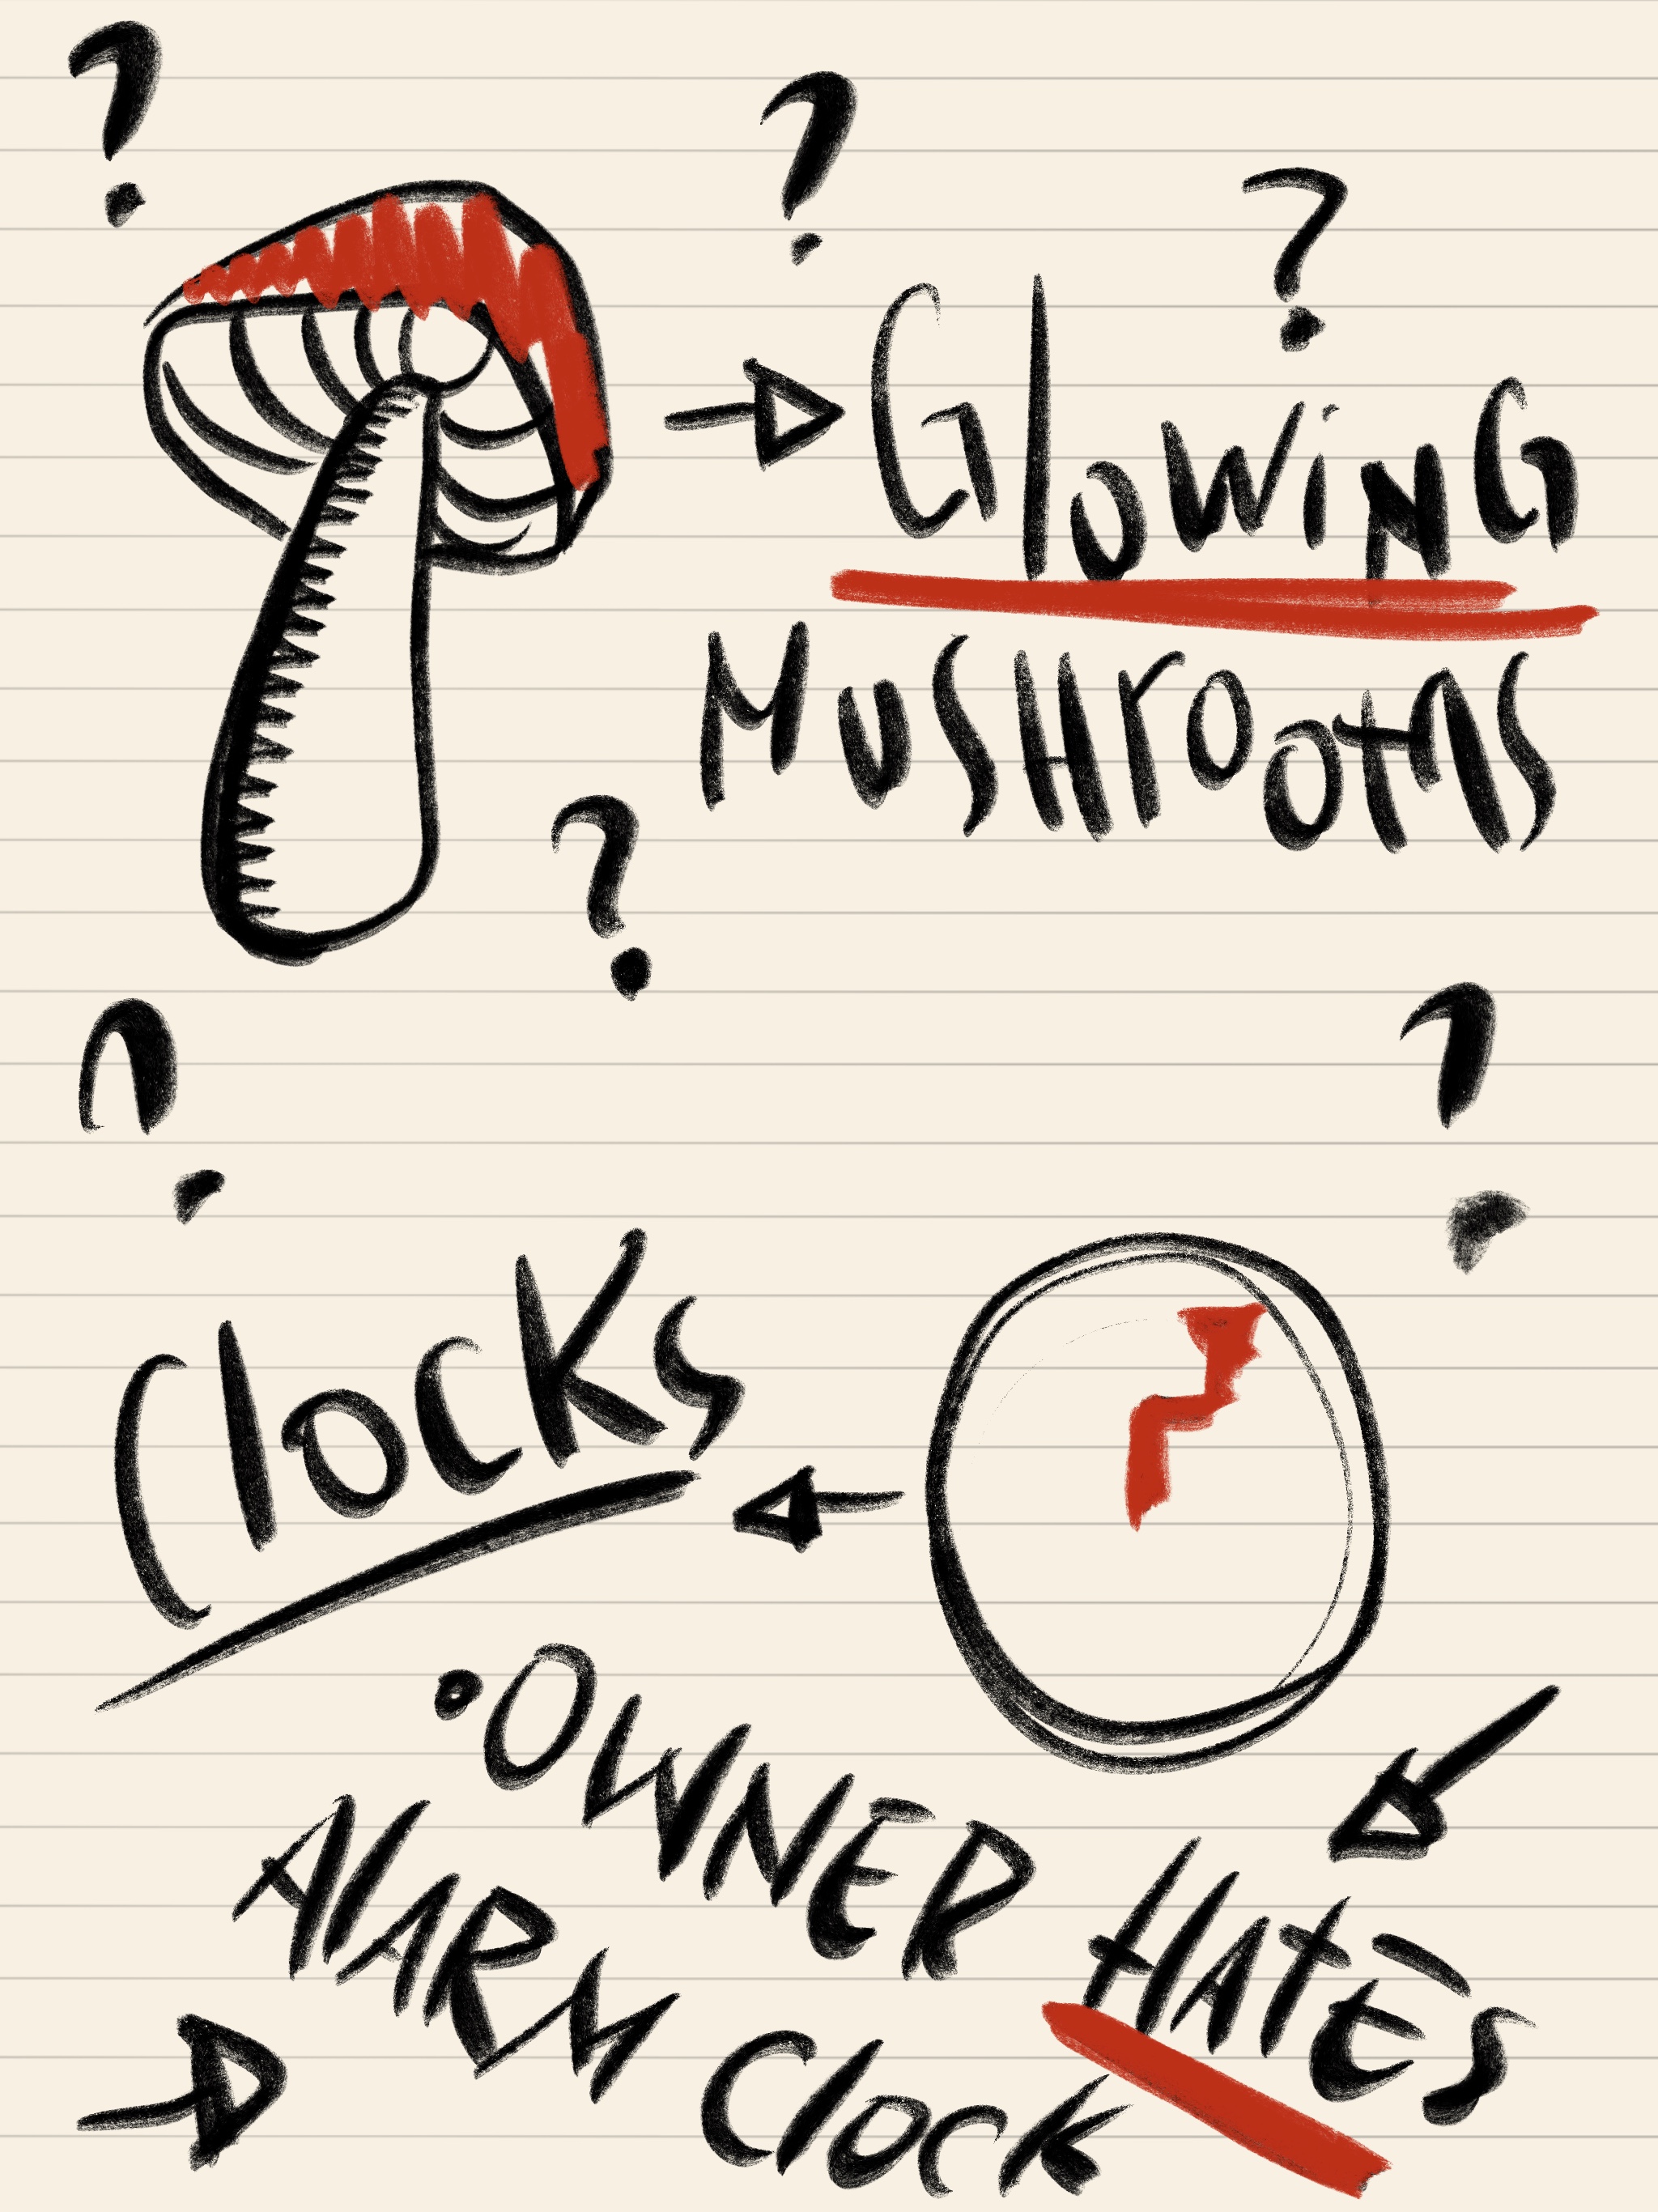 ?
?
?
GlowiNG
MusHrooms
?
?
?
ClocKs
•OWNER HATES
AlARM Clock